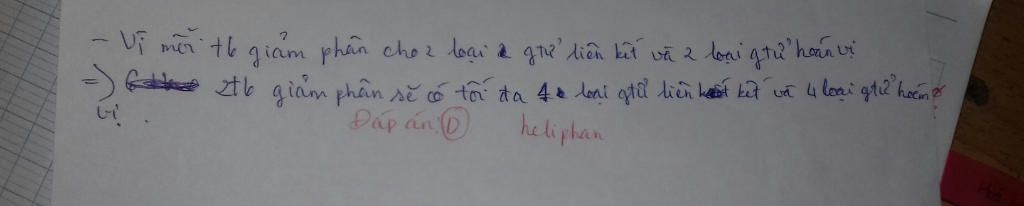 - Vì mỗi tb giảm phân cho 2 loại gtử liên kết và 2 loại gtử hoán vị
=> 2tb giảm phân sẽ có tối đa 4 loại gtử liên kết và 4 loại gtử hoán
vị.
Đáp án: D heliphan